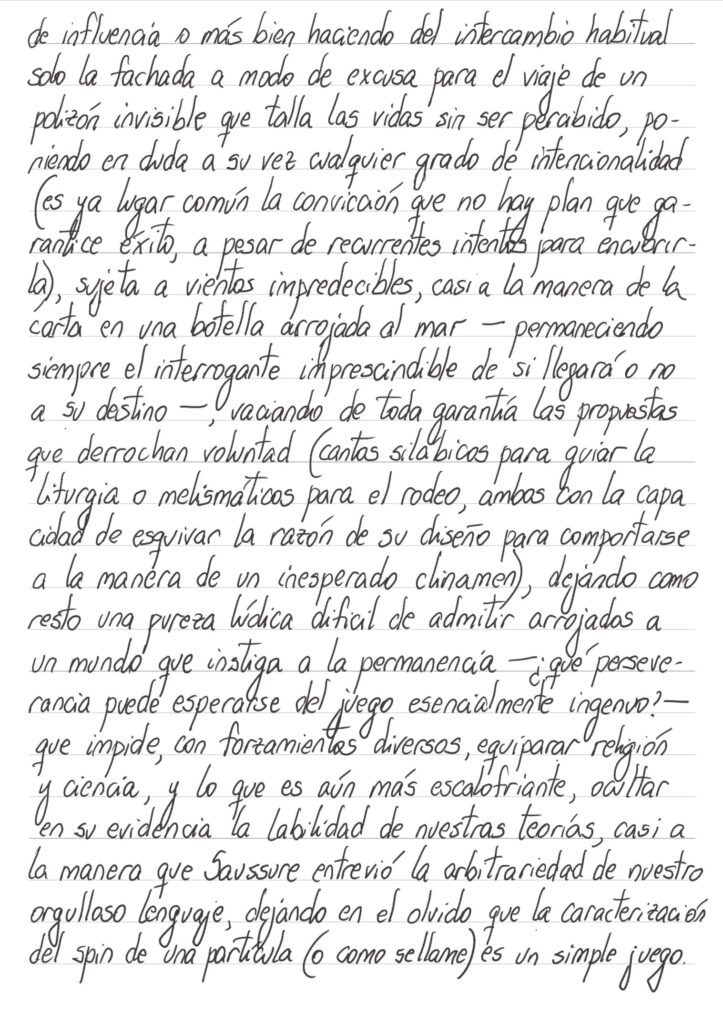 de influencia o más bien haciendo del intercambio habitual
solo la fachada a modo de excusa para el viaje de un
polizón invisible que talla las vidas sin ser percibido, po-
niendo en duda a su vez cualquier grado de intencionalidad
(es ya lugar común la convicción que no hay plan que ga-
rantice éxito, a pesar de recurrentes intentos para encubrir-
la), sujeta a vientos impredecibles, casi a la manera de la
carta en una botella arrojada al mar — permaneciendo
siempre el interrogante imprescindible de si llegará o no
a su destino —, vaciando de toda garantía las propuestas
que derrochan voluntad (cantos silábicos para guiar la
liturgia o melismáticos para el rodeo, ambos con la capa
cidad de esquivar la razón de su diseño para comportarse
a la manera de un inesperado clinamen), dejando como
resto una pureza lúdica difícil de admitir arrojados a
un mundo que instiga a la permanencia — ¿qué perseve-
rancia puede esperarse del juego esencialmente ingenuo? —
que impide, con forzamientos diversos, equiparar religión
y ciencia, y lo que es aún más escalofriante, ocultar
en su evidencia la labilidad de nuestras teorías, casi a
la manera que Saussure entrevió la arbitrariedad de nuestro
orgulloso lenguaje, dejando en el olvido que la caracterización
del spin de una partícula (o como sellame) es un simple juego.